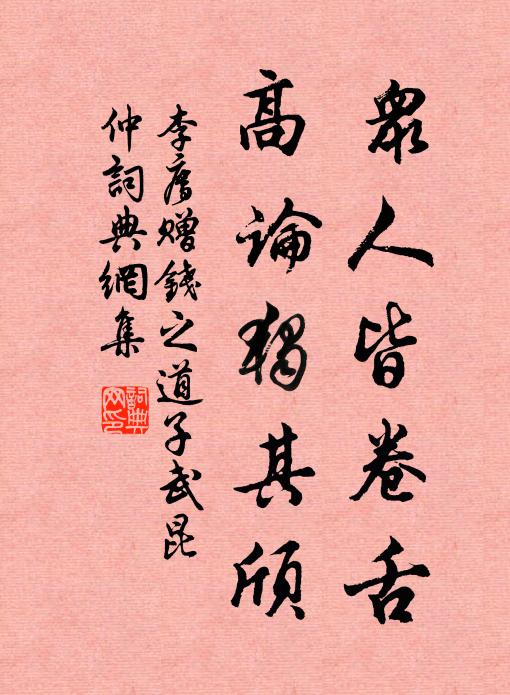 眾人皆卷舌
高論獨其頎
李廌贈錢之道子武昆
仲詞典網集
詞典网印